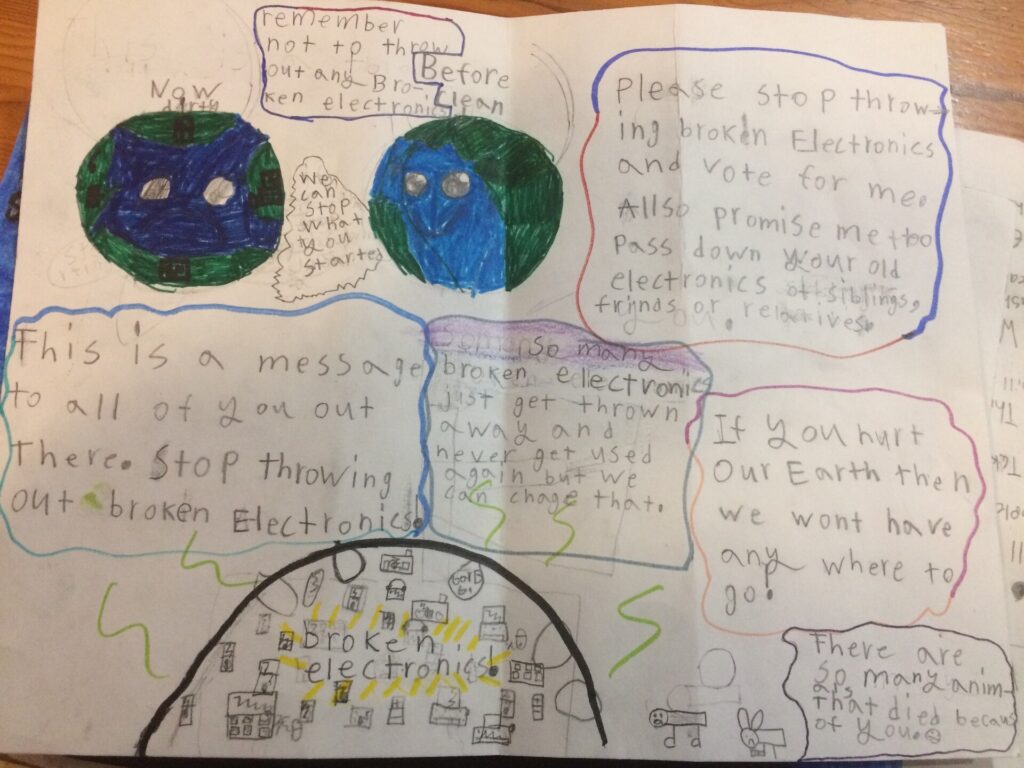 remember
not tp throw
out any Bro-
ken electronics
Now
dirty
Before
Clean
We
can
stop
what
you
started
Please stop throw-
ing broken Electronics
and vote for me.
Allso promise me too
pass down your old
electronics siblings,
frjnds or relatives.
This is a message
to all of you out
There. Stop throwing
out broken Electronics.
so many
broken electronics
just get thrown
away and
never get used
again but we
can chage that.
If you hurt
Our Earth then
we wont have
any where to
go!
broken
electronics!
There are
So many anim-
als
that died becaus
of you.